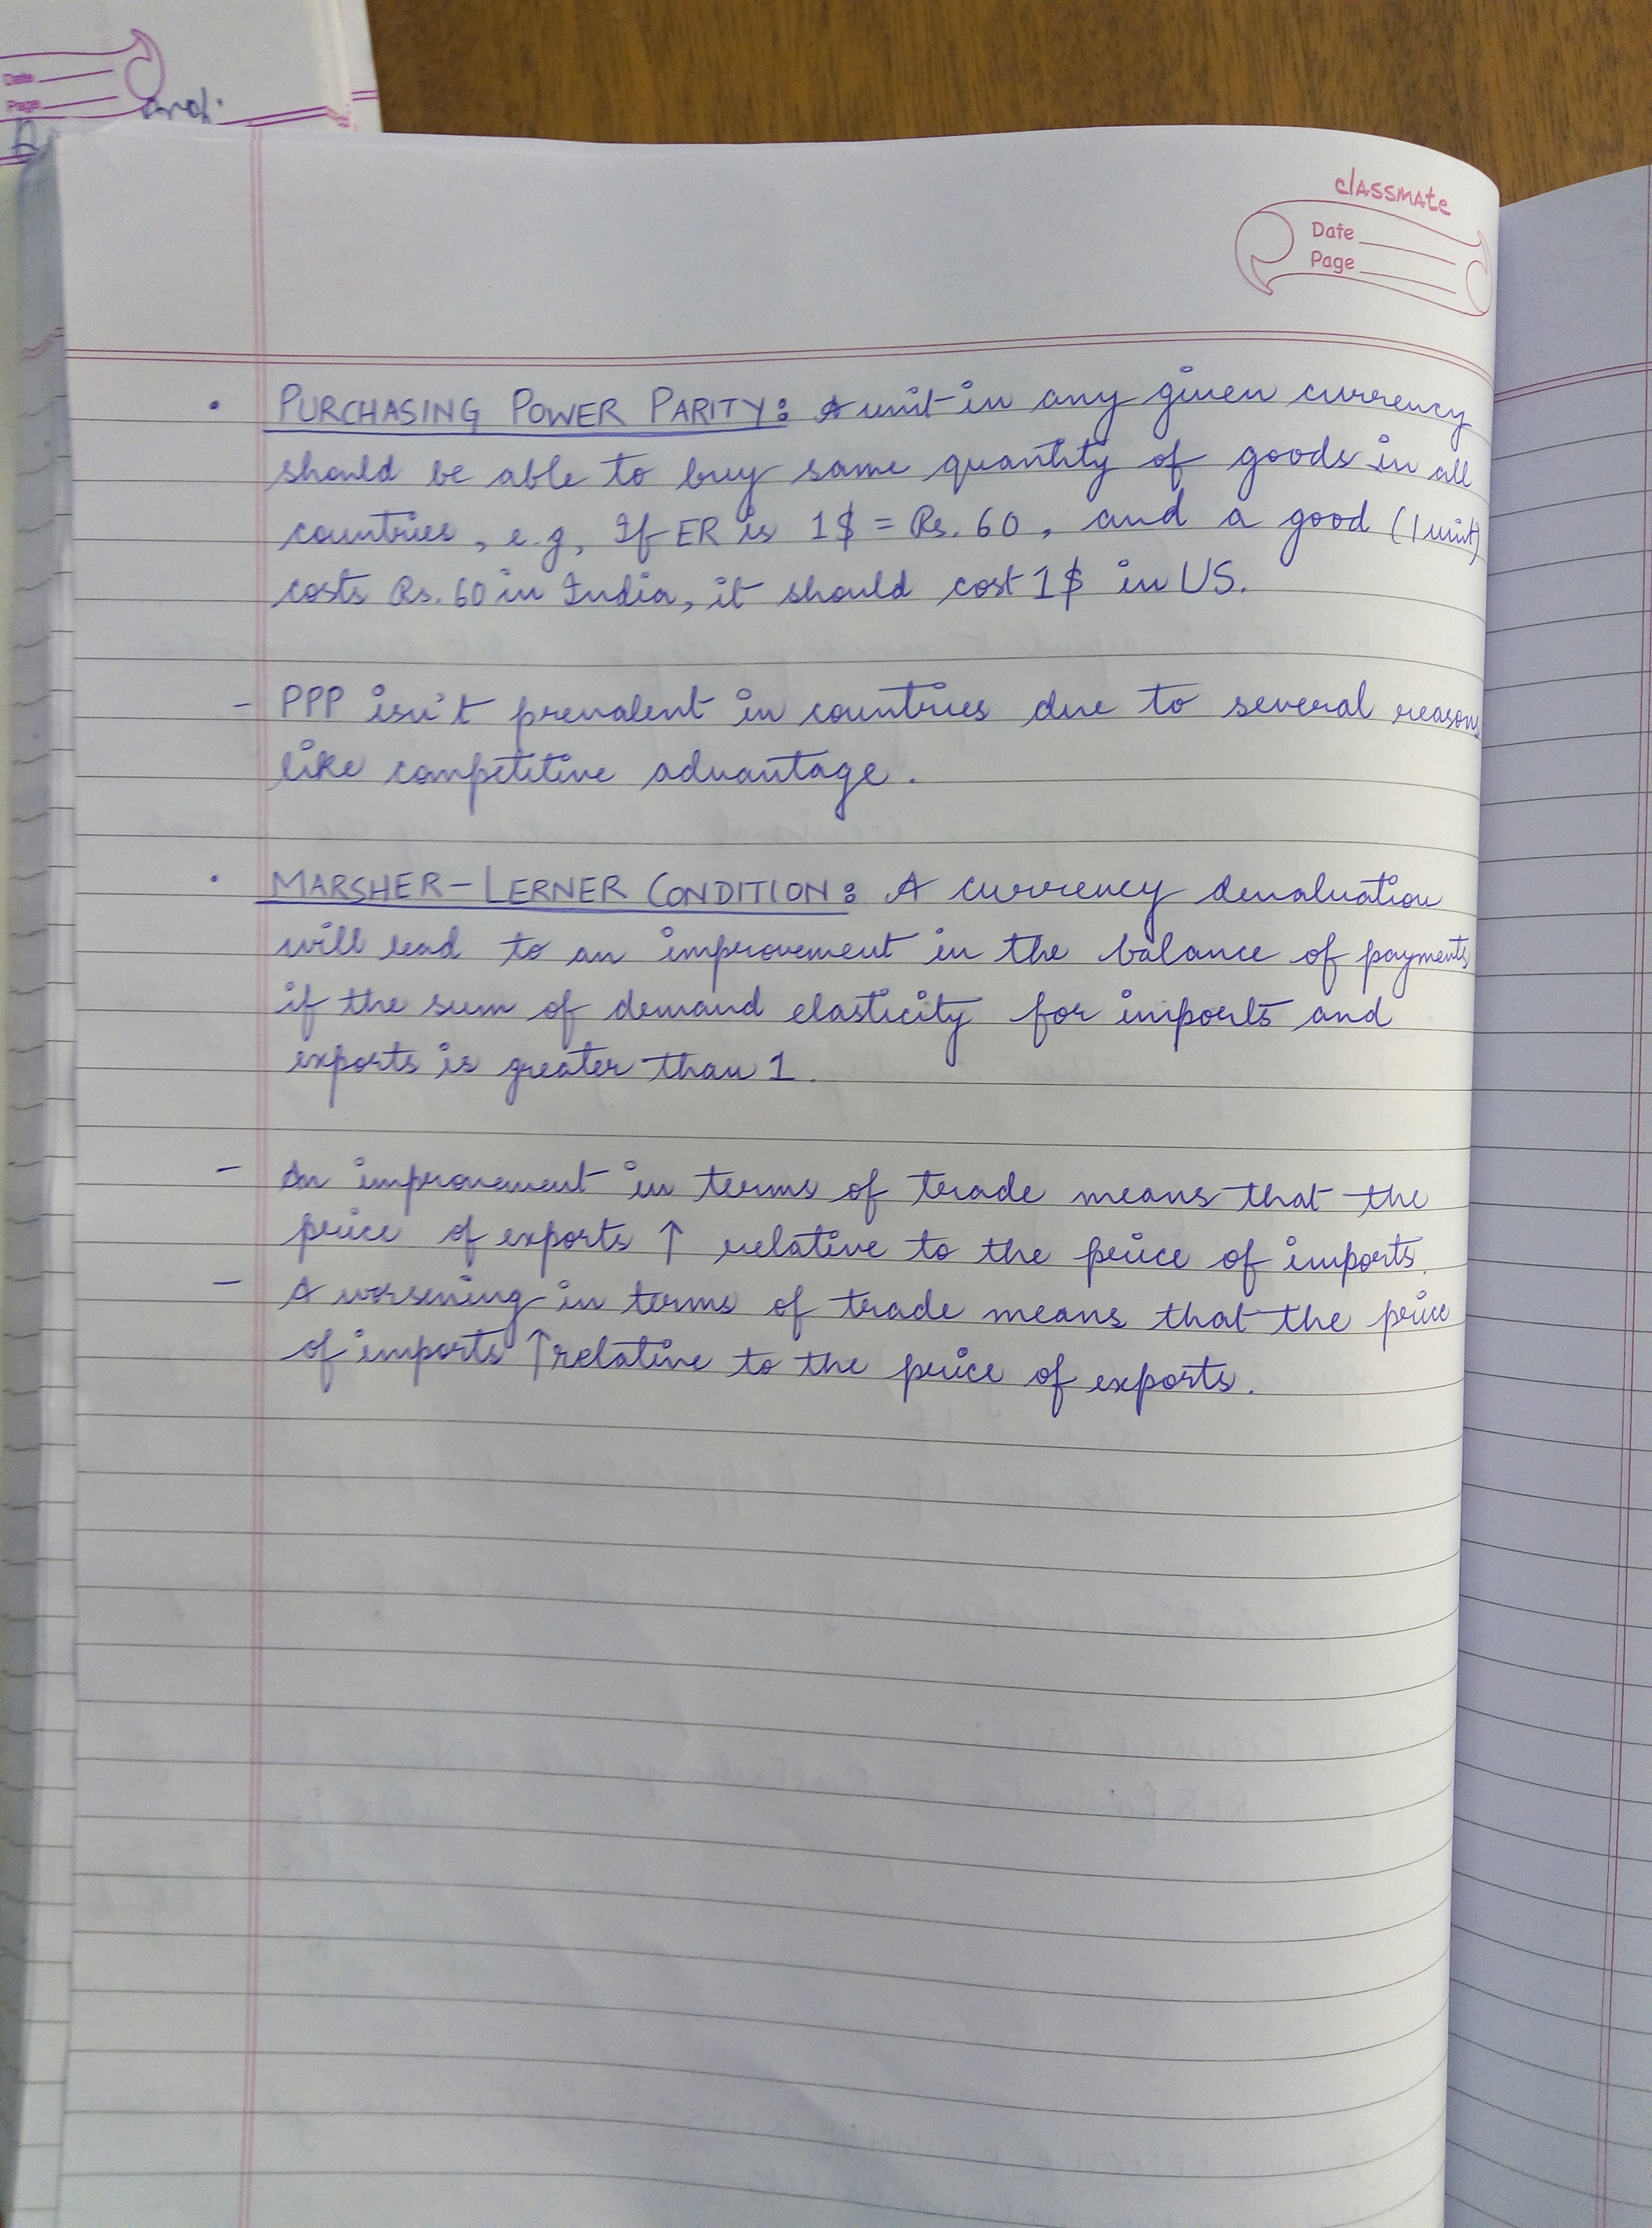 Date
Page
and.
classmate
Date
Page
• PURCHASING POWER PARITY: A unit in any given currency
should be able to buy same quantity of goods in all
countries, e.g, If ER is 1$ = Rs. 60, and a good (1 unit)
costs Rs. 60 in India, it should cost 1$ in US.
- PPP isn't prevalent in countries due to several reasons
like competitive advantage.
• MARSHER-LERNER CONDITION: A currency devaluation
will lead to an improvement in the balance of payments
if the sum of demand elasticity for imports and
exports is greater than 1.
- An improvement in terms of trade means that the
price of exports ↑ relative to the price of imports.
- A worsening in terms of trade means that the price
of imports ↑ relative to the price of exports.